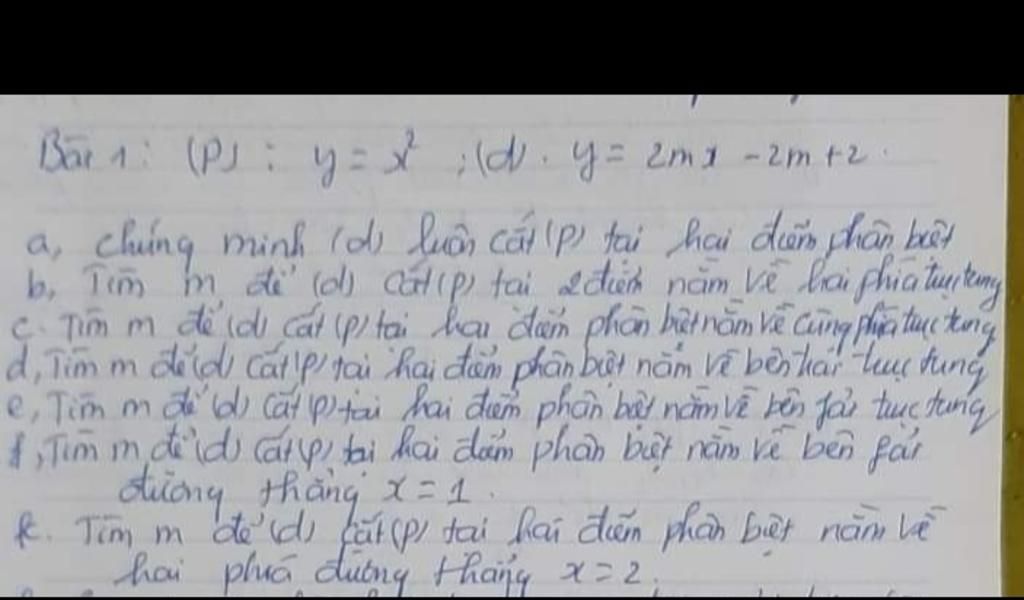 Bài 1: (P): y = x² ; (d). y = 2mx - 2m + 2.
a, chứng minh (d) luôn cắt (P) tại hai điểm phân biệt
b, Tìm m để (d) cắt (P) tại 2 điểm nằm về hai phía trục tung
c. Tìm m để (d) cắt (P) tại hai điểm phân biệt nằm về cùng phía trục tung
d, Tìm m để (d) cắt (P) tại hai điểm phân biệt nằm về bên trái trục tung
e, Tìm m để (d) cắt (P) tại hai điểm phân biệt nằm về bên fải trục tung
f, Tìm m để (d) cắt (P) tại hai điểm phân biệt nằm về bên fải
đường thẳng x = 1.
k. Tìm m để (d) cắt (P) tại hai điểm phân biệt nằm về
hai phía đường thẳng x = 2.